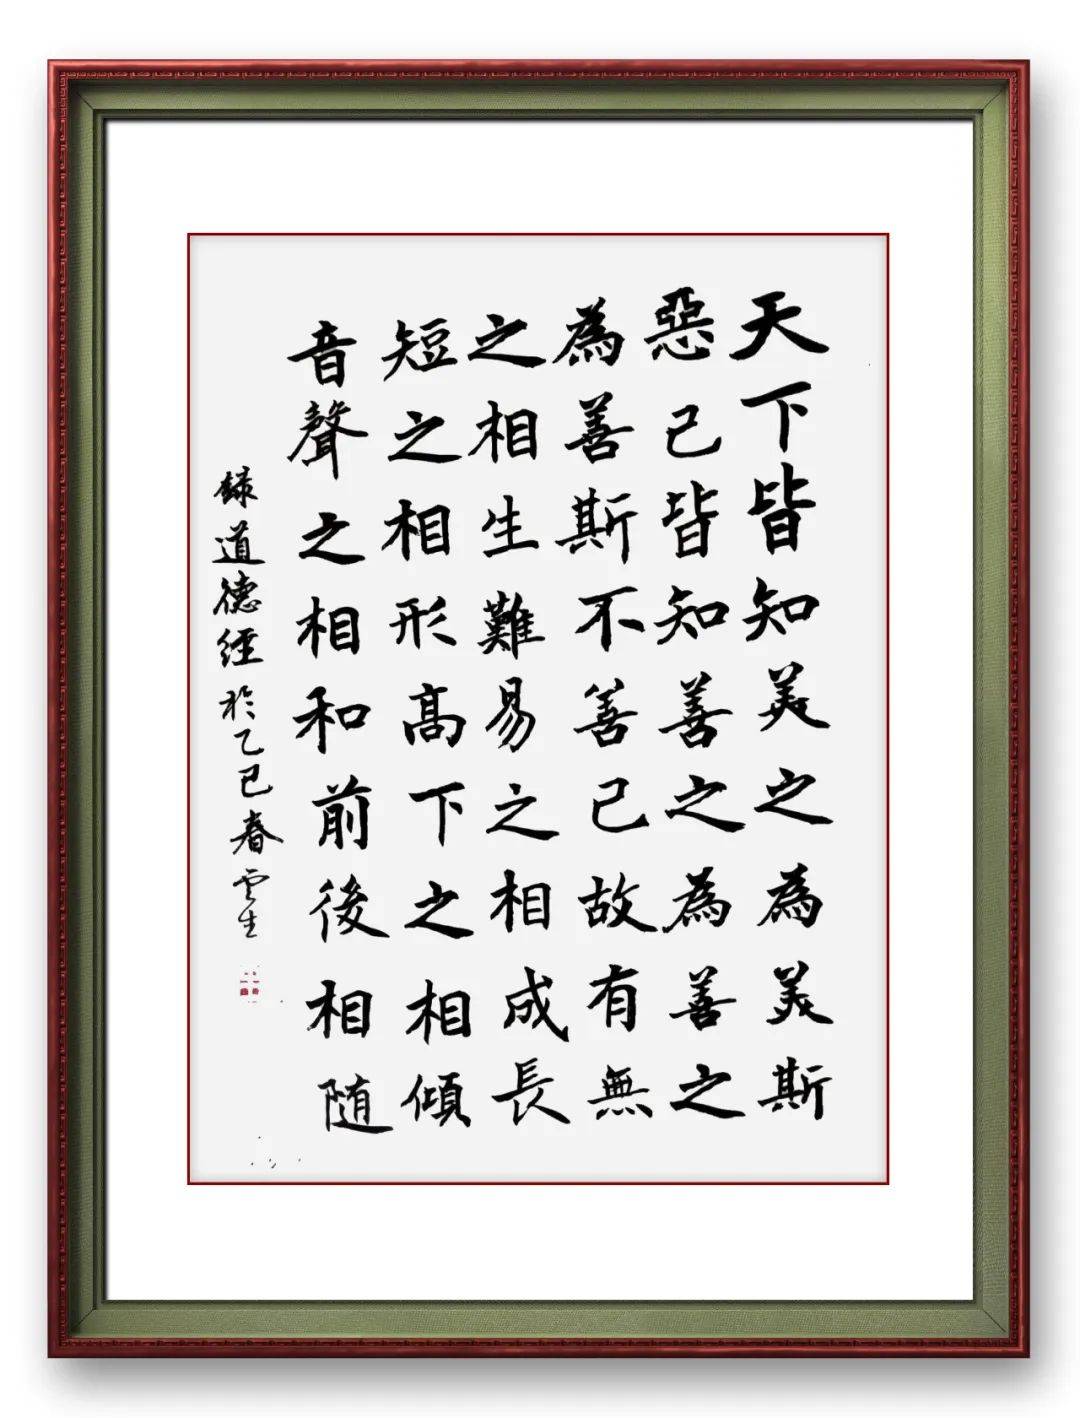 天下皆知美之為美斯
惡已皆知善之為善之
為善斯不善已故有無
之相生難易之相成長
短之相形高下之相傾
音聲之相和前後相随
録道德經於乙巳春雲生